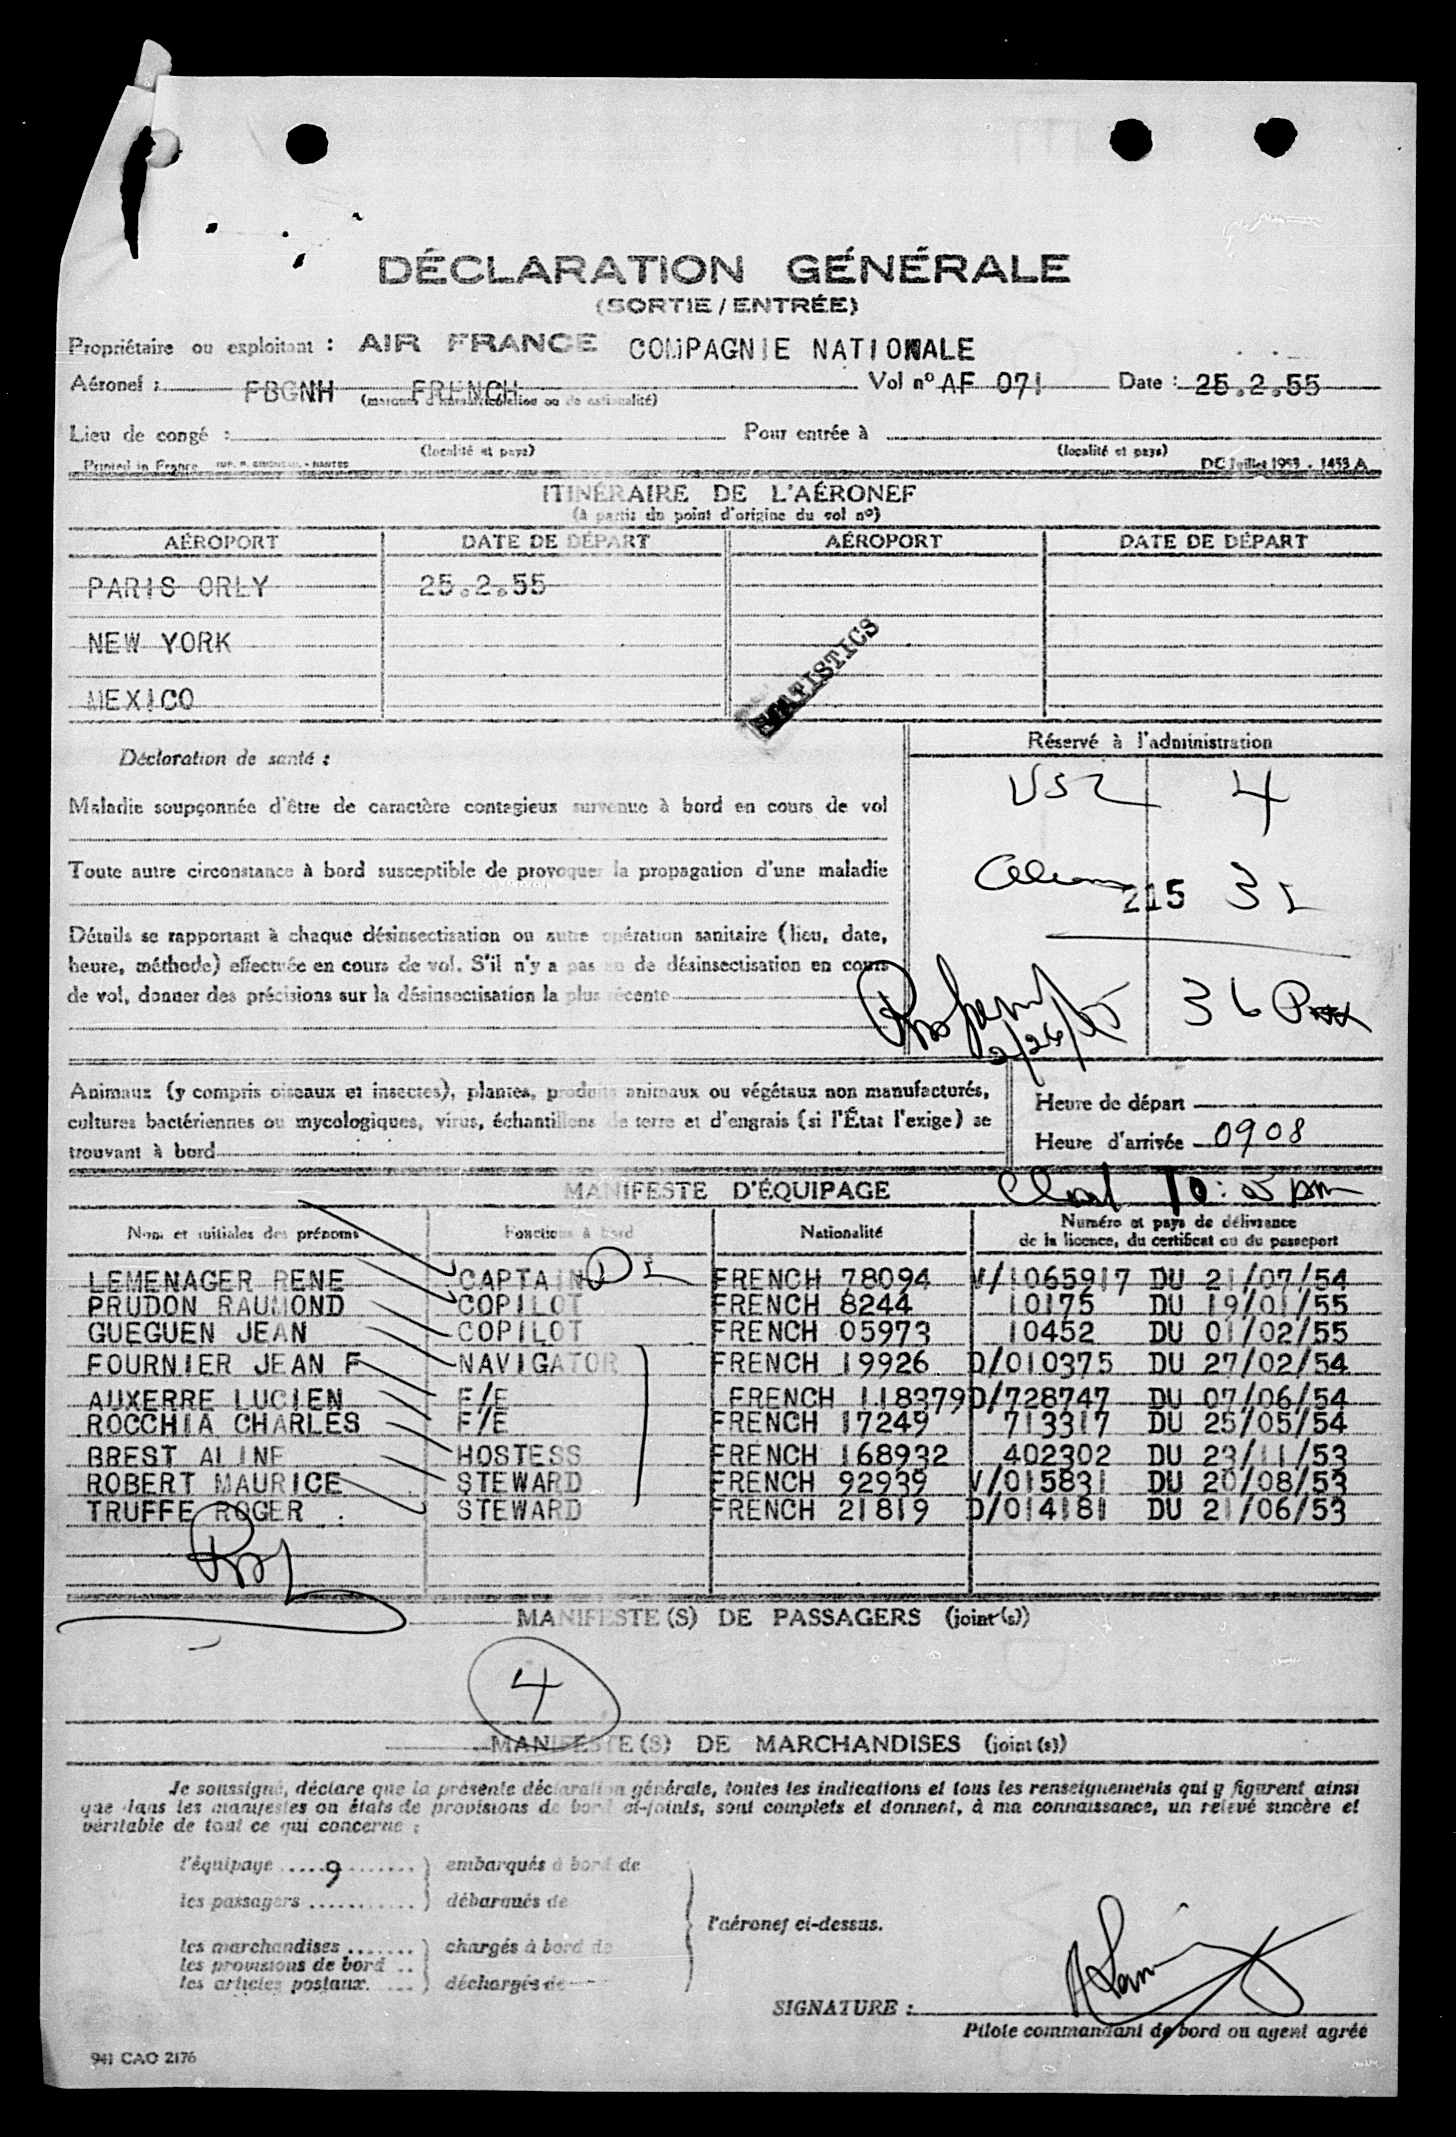 DÉCLARATION GÉNÉRALE
(SORTIE / ENTRÉE)
Propriétaire ou exploitant : AIR FRANCE COMPAGNIE NATIONALE
Aéronef : FBGNH FRENCH Vol nº AF 071 Date : 25.2.55
(marques d'immatriculation ou de nationalité)
Lieu de congé : Pour entrée à
(localité et pays) (localité et pays)
Printed in France IMP. R. - NANTES DC Juillet 1953 . 1453 A
ITINÉRAIRE DE L'AÉRONEF
(à partir du point d'origine du vol nº)
AÉROPORT DATE DE DÉPART AÉROPORT DATE DE DÉPART
PARIS ORLY 25.2.55
NEW YORK
MEXICO
STATISTICS
Déclaration de santé : Réservé à l'administration
Maladie soupçonnée d'être de caractère contagieux survenue à bord en cours de vol
4
Toute autre circonstance à bord susceptible de provoquer la propagation d'une maladie
215
Détails se rapportant à chaque désinsectisation ou autre opération sanitaire (lieu, date,
heure, méthode) effectuée en cours de vol. S'il n'y a pas eu de désinsectisation en cours
de vol, donner des précisions sur la désinsectisation la plus récente
2/26/55
Animaux (y compris oiseaux et insectes), plantes, produits animaux ou végétaux non manufacturés,
cultures bactériennes ou mycologiques, virus, échantillons de terre et d'engrais (si l'État l'exige) se
trouvant à bord
Heure de départ
Heure d'arrivée 0908
MANIFESTE D'ÉQUIPAGE
Nom et initiales des prénoms Fonctions à bord Nationalité Numéro et pays de délivrance
de la licence, du certificat ou du passeport
LEMENAGER RENE CAPTAIN FRENCH 78094 V/1065917 DU 21/07/54
PRUDON RAUMOND COPILOT FRENCH 8244 10175 DU 19/01/55
GUEGUEN JEAN COPILOT FRENCH 05973 10452 DU 01/02/55
FOURNIER JEAN F NAVIGATOR FRENCH 19926 D/010375 DU 27/02/54
AUXERRE LUCIEN F/E FRENCH 118379 D/728747 DU 07/06/54
ROCCHIA CHARLES F/E FRENCH 17249 713317 DU 25/05/54
BREST ALINE HOSTESS FRENCH 168932 402302 DU 23/11/53
ROBERT MAURICE STEWARD FRENCH 92939 V/015831 DU 20/08/53
TRUFFE ROGER STEWARD FRENCH 21819 D/014181 DU 21/06/53
MANIFESTE (S) DE PASSAGERS (joint (s))
4
MANIFESTE (S) DE MARCHANDISES (joint (s))
Je soussigné, déclare que la présente déclaration générale, toutes les indications et tous les renseignements qui y figurent ainsi
que dans les manifestes ou états de provisions de bord ci-joints, sont complets et donnent, à ma connaissance, un relevé sincère et
véritable de tout ce qui concerne :
l'équipage ..... 9 ....... ) embarqués à bord de
les passagers ........... ) débarqués de
l'aéronef ci-dessus.
les marchandises ....... ) chargés à bord de
les provisions de bord ..
les articles postaux. .... ) déchargés de
SIGNATURE :
Pilote commandant de bord ou agent agréé
941 CAO 2176